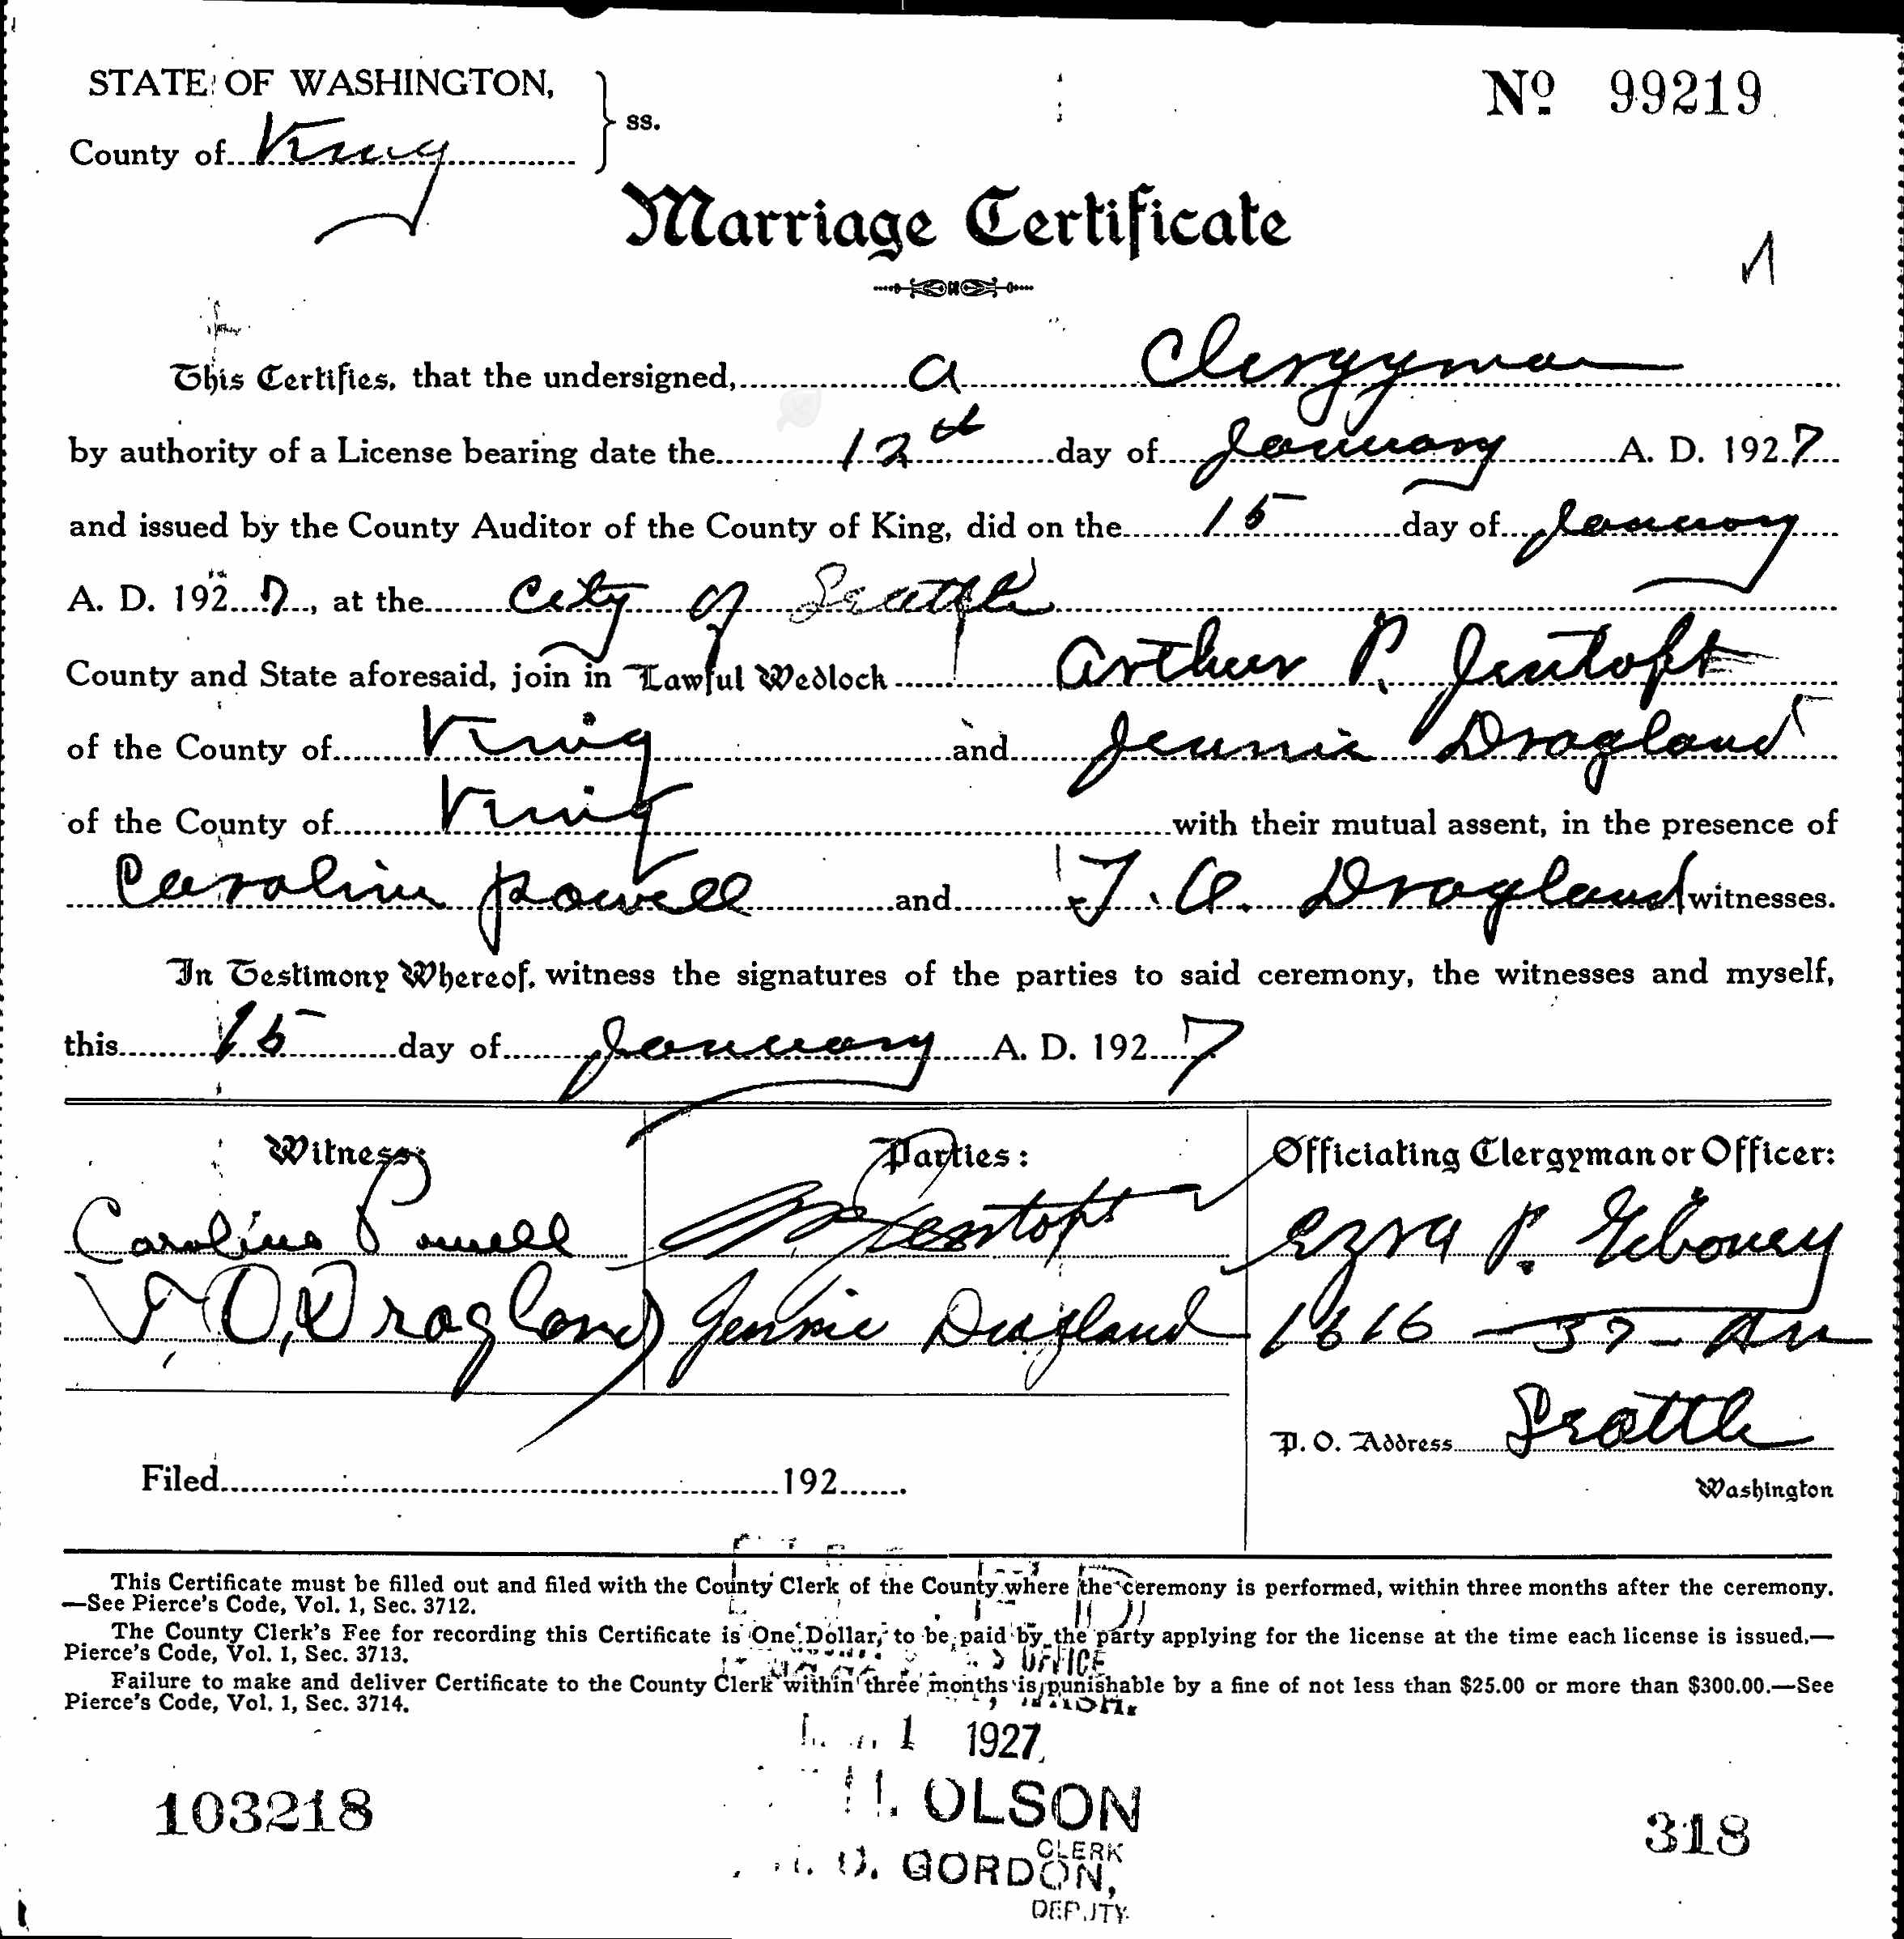 STATE OF WASHINGTON,
County of King ss.
No 99219
Marriage Certificate
This Certifies, that the undersigned, a Clergyman
by authority of a License bearing date the 12th day of January A. D. 1927
and issued by the County Auditor of the County of King, did on the 15 day of January
A. D. 1927, at the City of Seattle
County and State aforesaid, join in Lawful Wedlock Arthur P. Jentoft
of the County of King and Jennie Dragland
of the County of King with their mutual assent, in the presence of
Caroline Powell and T. O. Dragland witnesses.
In Testimony Whereof, witness the signatures of the parties to said ceremony, the witnesses and myself,
this 15 day of January A. D. 1927
Witness: Parties: Officiating Clergyman or Officer:
Caroline Powell Jentoft Ezra P. Giboney
T. O. Dragland Jennie Dragland 1616 - 37 - Av
P. O. Address Seattle
Filed 192
Washington
This Certificate must be filled out and filed with the County Clerk of the County where the ceremony is performed, within three months after the ceremony.
—See Pierce's Code, Vol. 1, Sec. 3712.
The County Clerk's Fee for recording this Certificate is One Dollar, to be paid by the party applying for the license at the time each license is issued,—
Pierce's Code, Vol. 1, Sec. 3713.
OFFICE
Failure to make and deliver Certificate to the County Clerk within three months is punishable by a fine of not less than $25.00 or more than $300.00.—See
Pierce's Code, Vol. 1, Sec. 3714.
1 1927
OLSON
CLERK
GORDON,
DEPUTY
103218
318